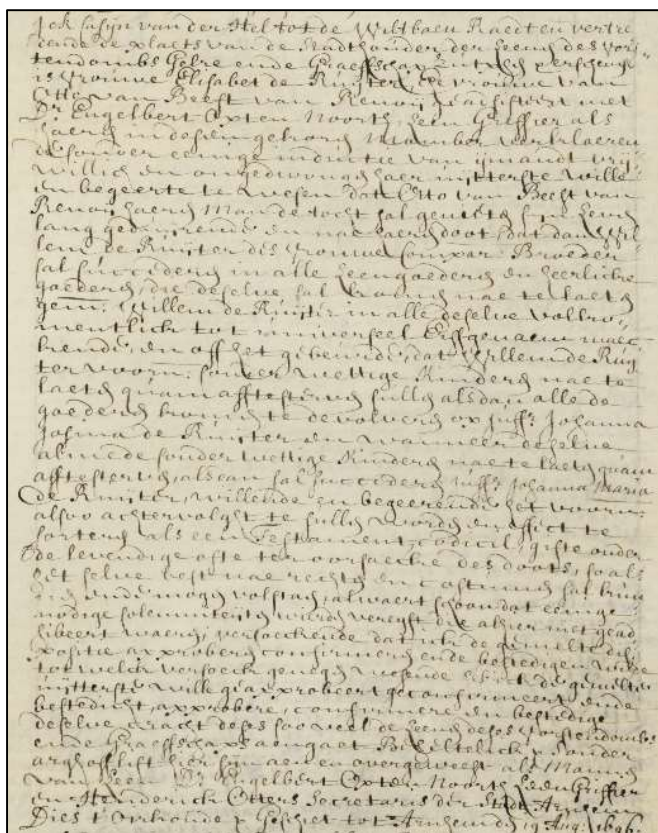 Ick Casijn van der Hel tot de Wiltbaen Raedt en vertre
dende de plaets van de Stadthouder der Leenen des Vors
tendombs Gelre ende Graeffschap Zutphen
is Vrouwe Elisabet de Ruijter, vrouwe van
Otto van Beest van Renoij geassisteert met
Dr. Engelbert Opten Noorth, Leen Griffier als
haeren in desen gekoren Momber verklaeren
de sonder eenige inductie van ijmandt vrij
willich en ongedwongen haer uijtterste wille
en begeerte te wesen dat Otto van Beest van
Renoij haeren Man de tocht sal genieten sijn leven
lang gedurende en nae haeren doot, dat dan Wil
lem de Ruijter des Vrouwe Compar. Broeder
sal succederen in alle Leengoederen en heerlicke
goederen, die deselve sal komen nae te laeten
Willem de Ruijter in alle deselve volko
mentlick tot universeel Erffgenaem maec
kende, en off het gebeurde, dat Willem de Ruij
ter voorn. sonder wettige kinderen nae te
laeten quam afftesterven sullen alsdan alle de
goederen komen te devolveren op Juffr. Johanna
Josina de Ruijter en wanneer deselve
almede sonder wettige kinderen nae te laeten quam
afftesterven, alsdan sal succederen Juffr. Johanna Maria
de Ruijter, willende en begeerende het voorn.
alsoo achtervolght te sullen worden en effect te
sorteren als een Testament, codicil, gifte onder
de levendige ofte ter oorsaecke des doots, soo als
het selve best nae rechten en costumen sal kun
nen ende mogen volstaen, alwaert schoon dat eenige
nodige solemniteijten wierden vereijst die alhier niet gead
hibeert waeren, versoeckende dat ick de gemelte dis
positie approberen confirmeren ende bestedigen wilde
tot welck versoeck genegen wesende hebbe de gemelte
uijtterste wille geapprobeert geconfirmeert ende
bestedicht, approbere, confirmere en bestedige
deselve cracht deses soo veel de Leenen deses Vorstendombs
ende Graeffschaps aengaet Beheltelick sonder
arghelist hier sijn aen en over geweest als Mannen
van Leen Dr. Engelbert Opten Noorth Leen Griffier
en Henderick Otters Secretaris der Stadt Arnhem
Dies t'Oirkonde Geschiet tot Arnhem den 19 Aug. 1696